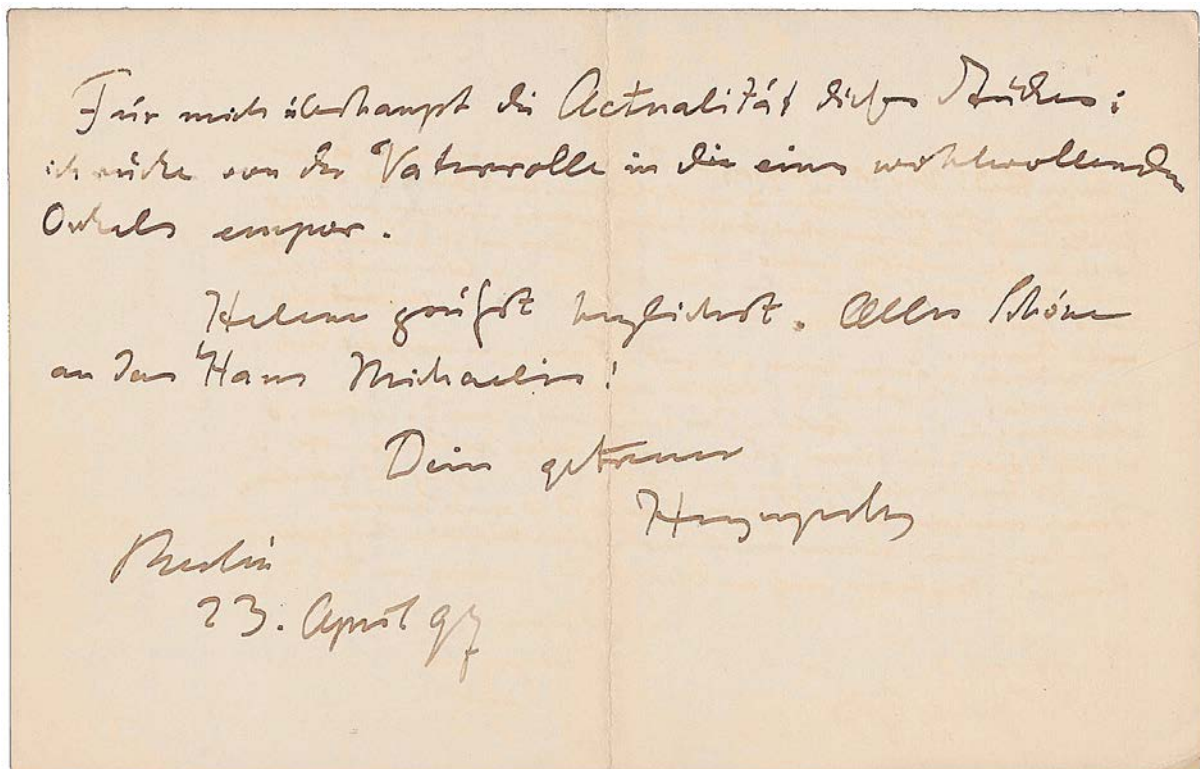 Für mich überhaupt die Actualität dieses Stückes:
ich rücke von der Vaterrolle in die eines wohlwollenden
Onkels empor.
Helene grüßt herzlichst. Alles Schöne
an das Haus Michaelis!
Dein getreuer
Berlin
23. April 97